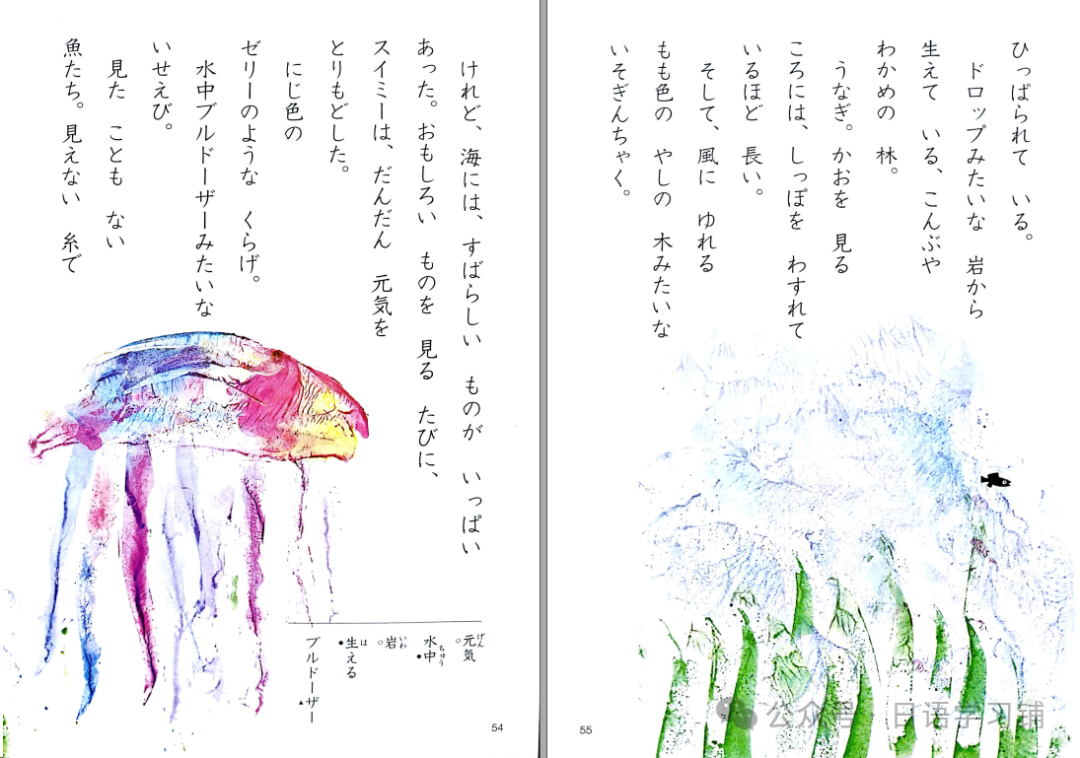 けれど、海には、すばらしい　ものが　いっぱい
あった。おもしろい　ものを　見る　たびに、
スイミーは、だんだん　元気を
とりもどした。
にじ色の
ゼリーのような　くらげ。
水中ブルドーザーみたいな
いせえび。
見た　ことも　ない
魚たち。見えない　糸で
元気
げん
水中
ちゅう
岩
いわ
生える
は
ブルドーザー
54
ひっぱられて　いる。
ドロップみたいな　岩から
生えて　いる、こんぶや
わかめの　林。
うなぎ。かおを　見る
ころには、しっぽを　わすれて
いるほど　長い。
そして、風に　ゆれる
もも色の　やしの　木みたいな
いそぎんちゃく。
55
公众号・日语学习铺